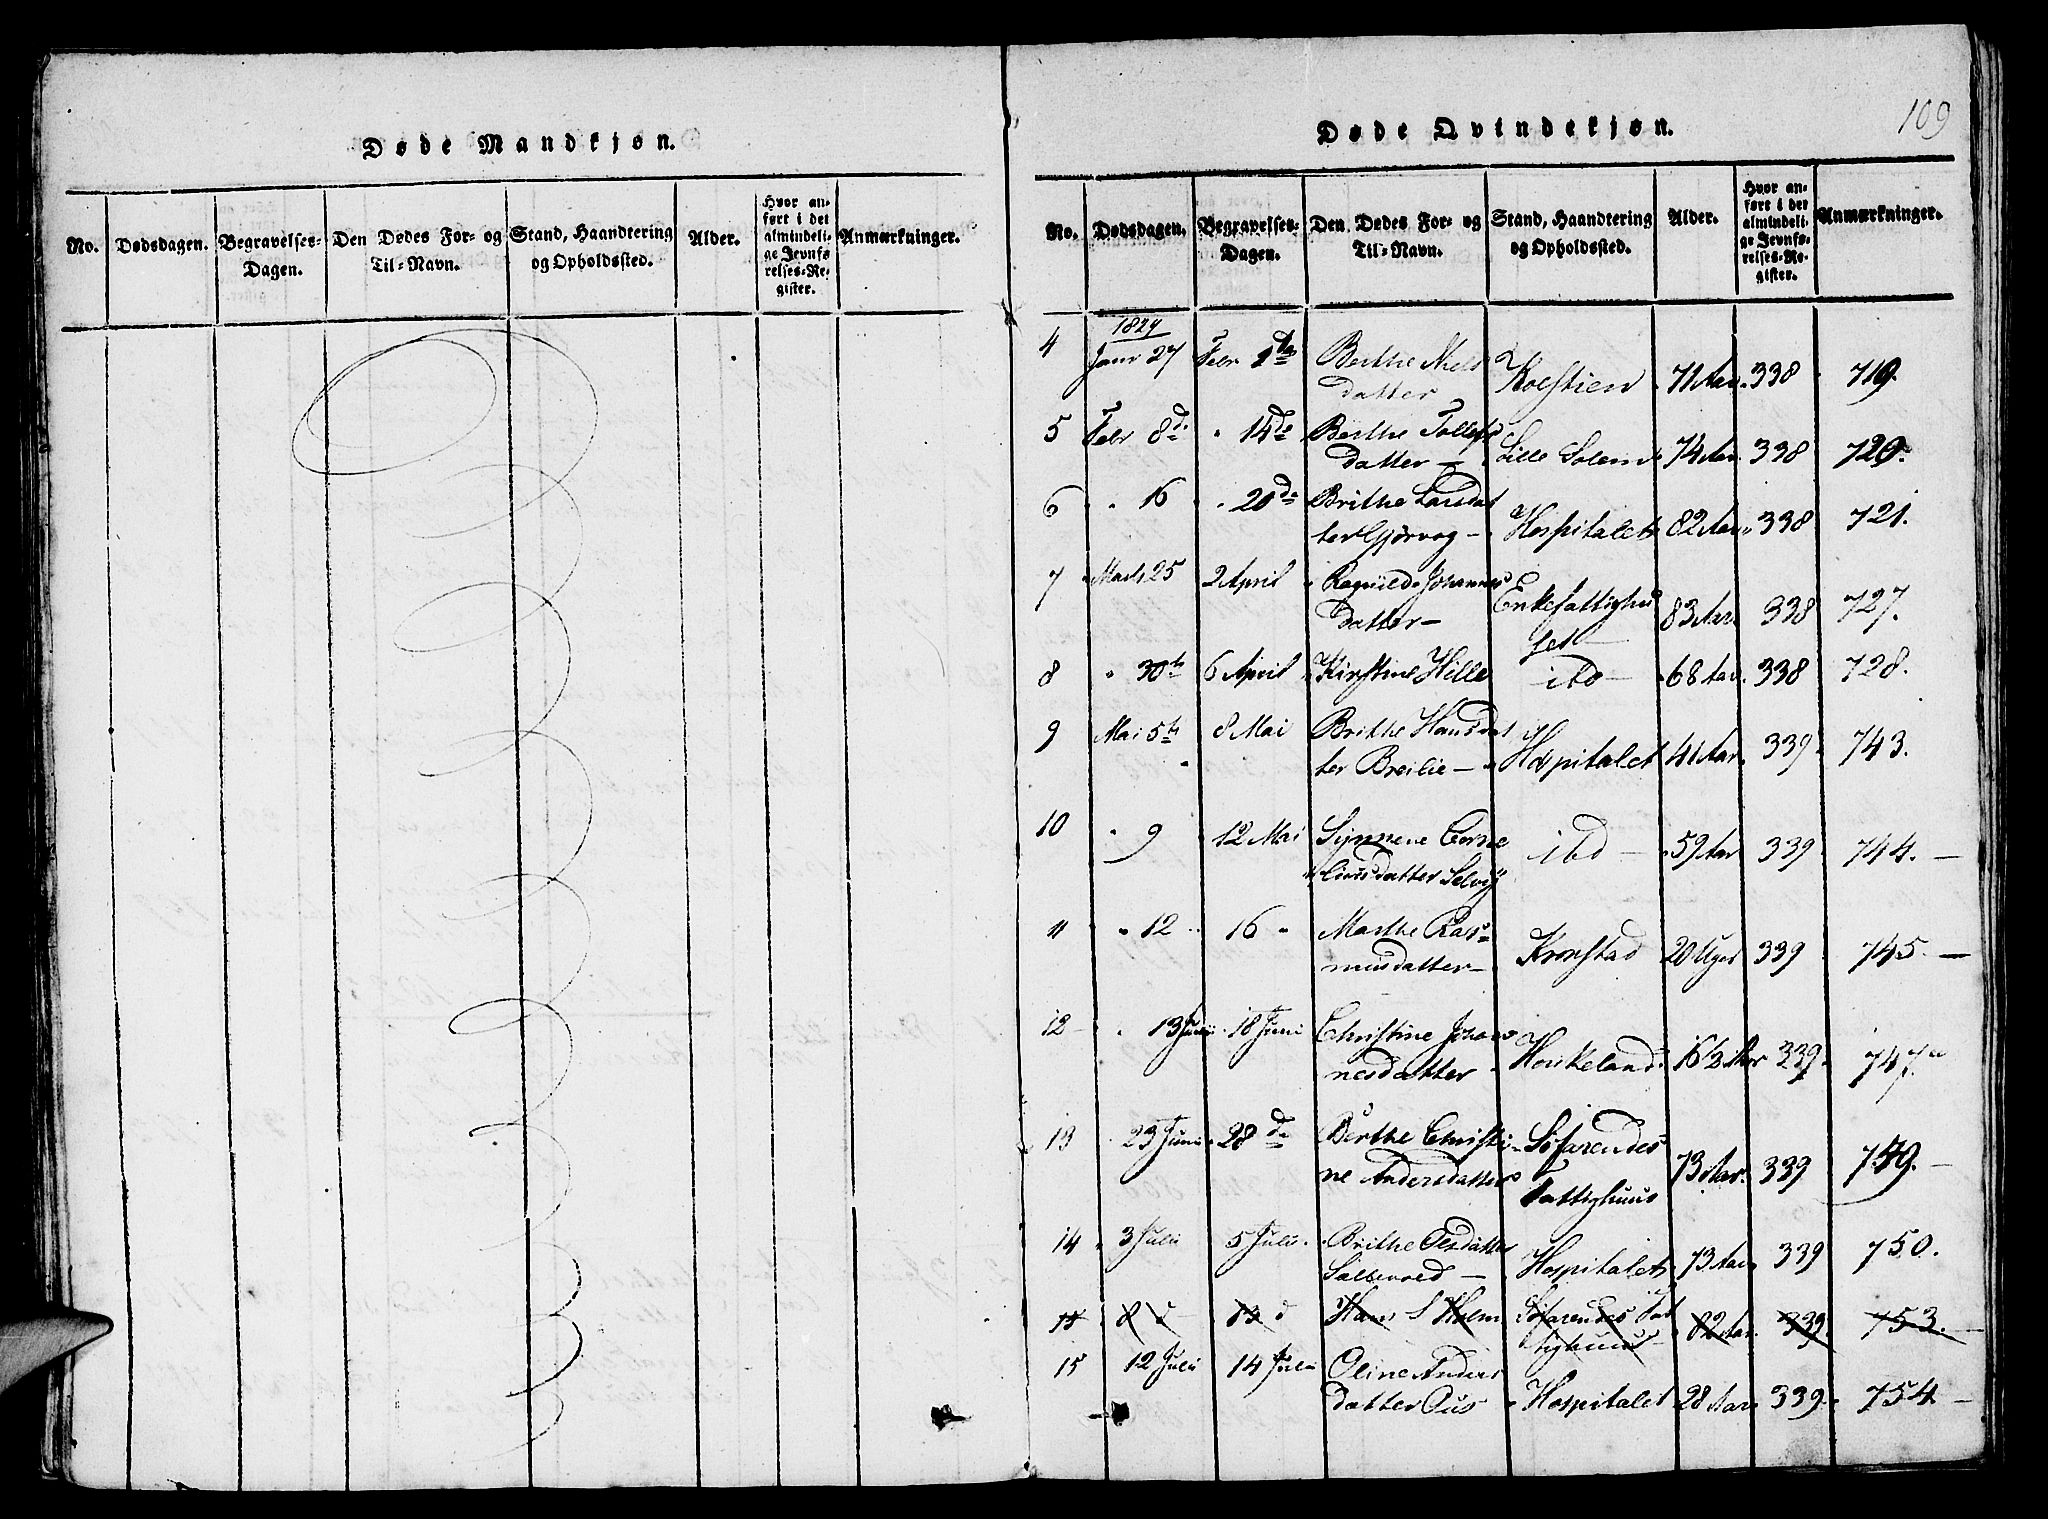 109
Døde Mandkjøn.
No.
Dødsdagen.
Begravelses-
Dagen.
Den Dødes For- og
Til-Navn.
Stand, Haandtering
og Opholdssted.
Alder.
Hvor an-
ført i det
almindeli-
ge Jevnfø-
relses-Re-
gister.
Anmærkninger.
Døde Qvindekjøn.
No.
Dødsdagen.
Begravelses-
Dagen.
Den Dødes For- og
Til-Navn.
Stand, Haandtering
og Opholdssted.
Alder.
Hvor an-
ført i det
almindeli-
ge Jevnfø-
relses-Re-
gister.
Anmærkninger.
1824
4 Janr 27 Febr 1 Berthe Niels
datter 71 Aar 338 719.
5 Febr 8d 14de Berthe Tollefs
datter — Lille Solem 74 Aar 338 720.
6 " 16 " 20de Brithe Larsdat
ter Gjørvog — Hospitalet 82 Aar 338 721.
7 Marts 25 2 April Ragnild Johannes
datter — Enkefattighu
set 83 Aar 338 727.
8 " 30te 6 April Kirstine Hille — ibd — 68 Aar 338 728.
9 Mai 5te 8 Mai Brithe Hansdat
ter Breilie — Hospitalet 41 Aar 339 743.
10 " 9 12 Mai Synneve Corne
liusdatter Selvig ibd — 59 Aar 339 744. —
11 " 12 16 " Marthe Ras=
musdatter — Kronstad 20 Uger 339 745. —
12 " 13 Juni 18 Juni Christine Johan
nesdatter Houkeland 16½ Aar 339 747.
13 23 Juni 28de Berthe Christi-
ne Andersdatter Søfarendes
Fattighuus 73 Aar 339 749. —
14 3 Juli 5 Juli Brithe Olsdatter
— Hospitalet 73 Aar 339 750.
15 8 d 13 d Hans S Holm Søfarendes Fat
tighuus 82 Aar 339 753. —
15 12 Juli 14 Juli Oline Anders
datter Ous Hospitalet 28 Aar 339 754 —